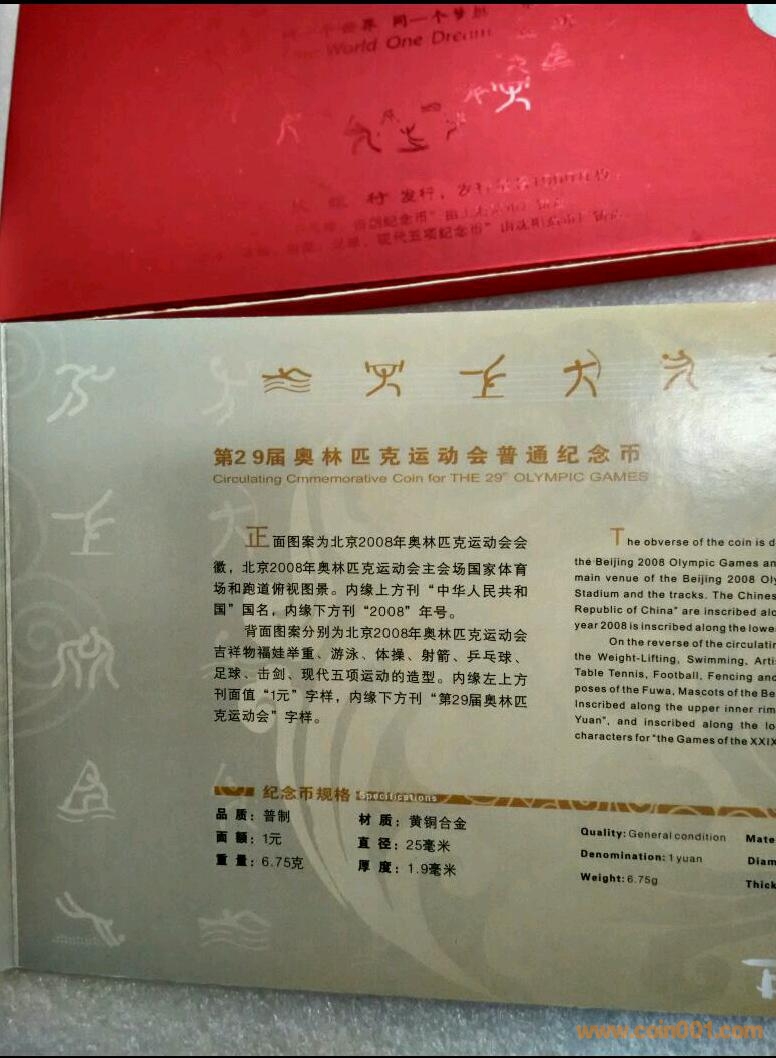 同一个世界 同一个梦想
World One Dream
行 发行，
纪念币”由
现代五项纪念币”由沈阳
第29届奥林匹克运动会普通纪念币
Circulating Cmmemorative Coin for THE 29" OLYMPIC GAMES
正面图案为北京2008年奥林匹克运动会会
徽，北京2008年奥林匹克运动会主会场国家体育
场和跑道俯视图景。内缘上方刊“中华人民共和
国”国名，内缘下方刊“2008”年号。
背面图案分别为北京2008年奥林匹克运动会
吉祥物福娃举重、游泳、体操、射箭、乒乓球、
足球、击剑、现代五项运动的造型。内缘左上方
刊面值“1元”字样，内缘下方刊“第29届奥林匹
克运动会”字样。
The obverse of the coin is d
the Beijing 2008 Olympic Games an
main venue of the Beijing 2008 Oly
Stadium and the tracks. The Chines
Republic of China" are inscribed alo
year 2008 is inscribed along the lowe
On the reverse of the circulatin
the Weight-Lifting, Swimming, Arti
Table Tennis, Football, Fencing and
poses of the Fuwa, Mascots of the Be
Inscribed along the upper inner rim
Yuan", and inscribed along the lo
characters for "the Games of the XXIX
纪念币规格 Specifications
品 质：普制
面 额：1元
重 量：6.75克
材 质：黄铜合金
直 径：25毫米
厚 度：1.9毫米
Quality: General condition
Denomination: 1 yuan
Weight: 6.75g
Mate
Diam
Thick
www.coin001.com